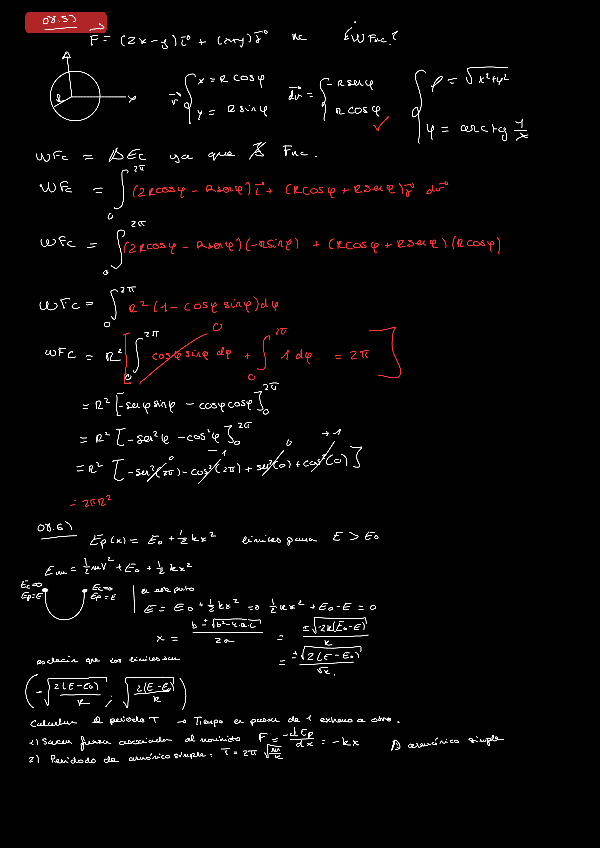 08.5)
F = (2x-y)i + (x+y)j
¿WFnc?
R x
r { x = R cosφ
y = R sinφ
dr = { -R senφ
R cosφ
ρ = √x²+y²
φ = arctg y/x
WFc = ΔEc ya que ∄ Fnc.
WFc = ∫₀^2π (2R cosφ - R senφ)i + (R cosφ + R senφ)j dr
WFc = ∫₀^2π (2R cosφ - R senφ)(-R sinφ) + (R cosφ + R senφ)(R cosφ)
WFc = ∫₀^2π R² (1 - cosφ sinφ)dφ
WFc = R² [∫₀^2π cosφ sinφ dφ + ∫₀^2π 1 dφ = 2π]
0
= R² [-senφ sinφ - cosφ cosφ]₀^2π
= R² [-sen²φ - cos²φ]₀^2π
= R² [-sen²(2π) - cos²(2π) + sen²(0) + cos²(0)]
0 -1 0 +1
= 2πR²
08.6)
Ep(x) = E₀ + ½kx² límites para E > E₀
Em = ½mv² + E₀ + ½kx²
Ec=0 Ec=0
Ep=E Ep=E
en este punto
E = E₀ + ½kx² => ½kx² + E₀ - E = 0
x = b ± √b²-4·a·c / 2a = ±√-2k(E₀-E) / k
= ±√2(E-E₀) / √k
es decir que los límites son
(-√2(E-E₀)/k ; √2(E-E₀)/k)
Calcular el periodo T → Tiempo en pasar de 1 extremo a otro.
1) Sacar fuerza asociada al F = -dEp/dx = -kx armónico simple
2) Periodo de armónico simple: T = 2π √m/k